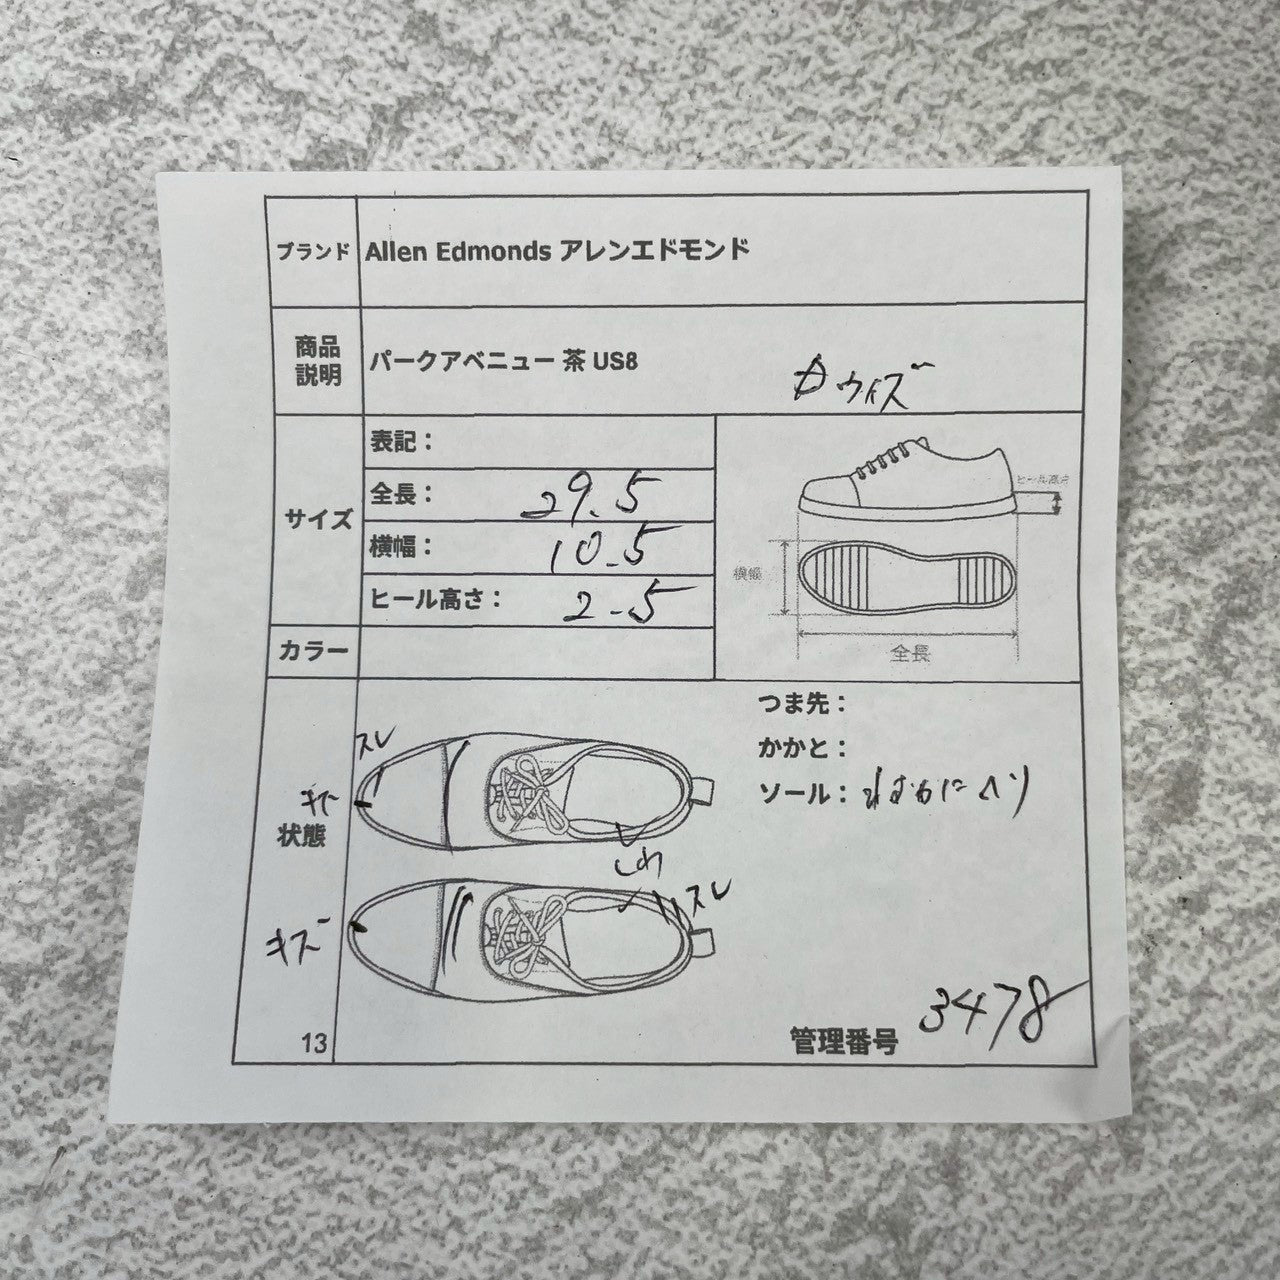 ブランド Allen Edmonds アレンエドモンド
商品
説明
パークアベニュー 茶 US8
Dウィズ
サイズ
表記：
全長： 29.5
横幅： 10.5
ヒール高さ： 2.5
ヒール高さ
横幅
全長
カラー
状態
つま先：
かかと：
ソール： わずかにヘリ
スレ
キズ
しわ
スレ
キズ
13
管理番号 3478